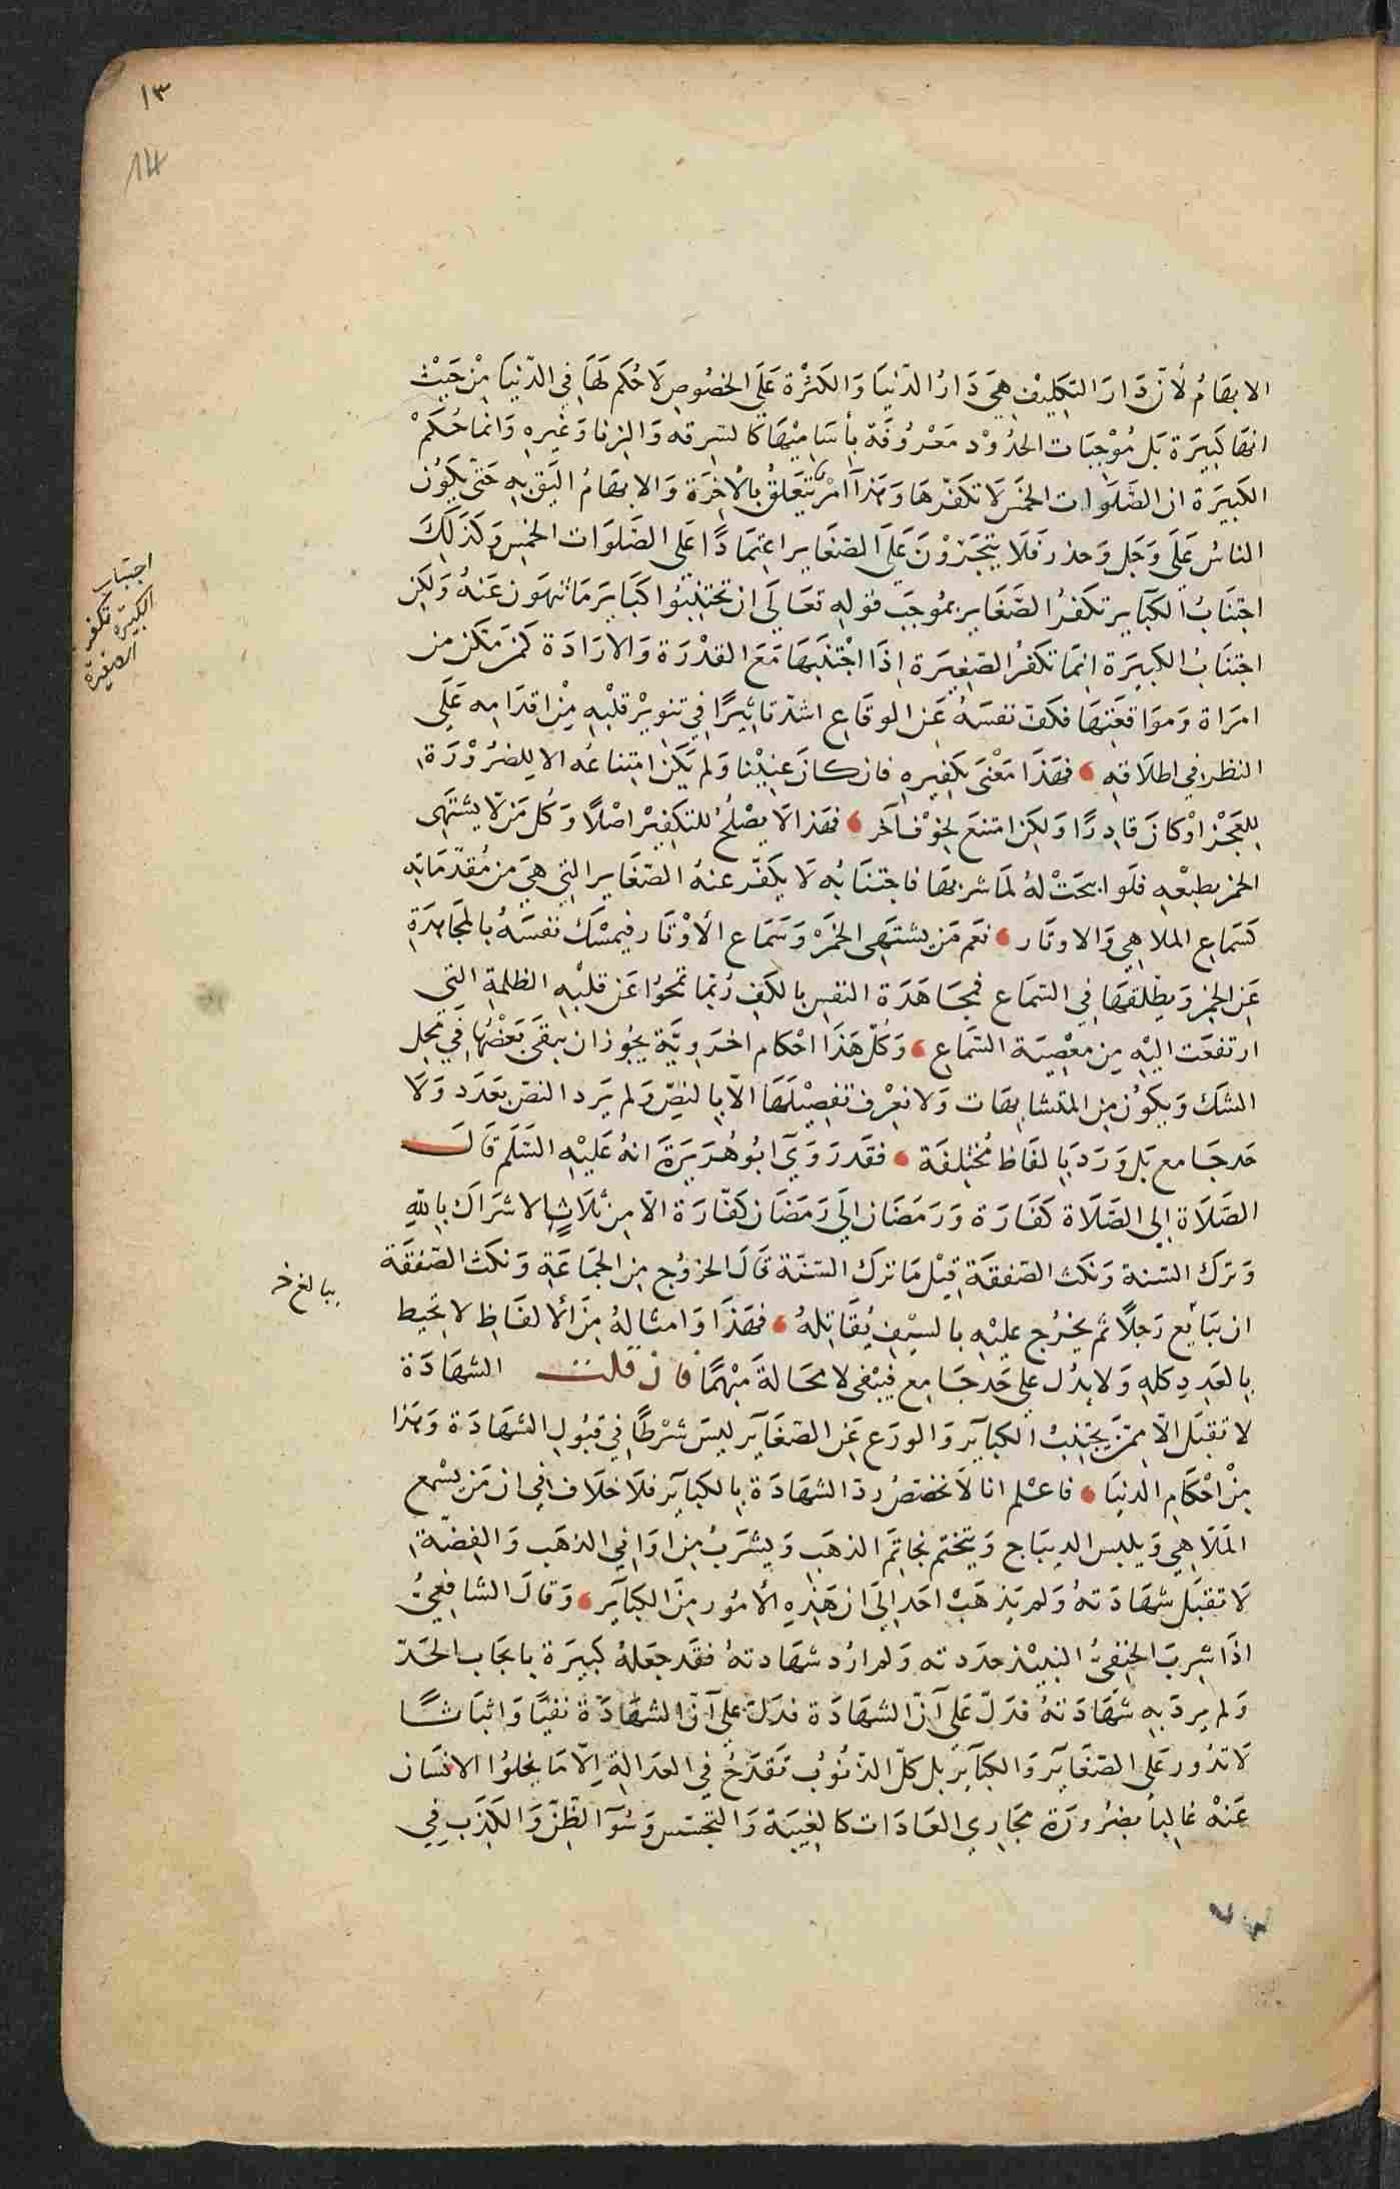 ١٣
14
الابهام لأنّ دَارَ التكليف هِيَ دَارُ الدّنيَا وَالكثْرة عَلَى الخصُوصِ لَا حُكم لهَا فِي الدّنيَا مِنْ حَيْث
انها كَبِيرَة بَل مُوْجِبَات الحدُوْد مَعْرُوفَة بِأسَامِيْهَا كالسرقه وَالزنا وَغيره وَانما حُكمْ
الكَبيرَة ان الصَّلَوات الخمسَ لَا تكفّرهَا وَهَذا امْر يتعَلقُ بالأخِرَة وَالابهَامُ اليَق بِهِ حَتّى يكوُن
الناسُ عَلَى وَجَلٍ وَحذر فَلَا يتجَرّؤنَ عَلَى الصّغاير اعتِمَادًا عَلى الصَّلوَات الخمسِ وَكذَلِكَ
اجتنَابُ الكبَآير تكَفرُ الصَّغَاير بمُوجَب قوله تعَالَى ان تجتنِبُوا كبَايرَ مَا تنهَون عَنهُ وَلكِن
اجتنَابُ الكبيرَة انمَا تكفرُ الصّغِيرَة اذَا اجْتنَبهَا مَعَ القدْرَة وَالارَادَة كَمن تمَكنَ من
امرَاة وَموَاقعَتهَا فكفّ نفسَهُ عَن الوقَاع اشدّ تاثِيرًا في تنوير قلبِهِ مِنْ اقدَامِه عَلَى
النظر في اطلَاقِهِ ، فهَذَا مَعْنَى تكفِيره فان كانَ عنيْنا وَلم يكن امتناعُه الا للضرُوْرَة
للعَجْز اوْ كانَ قادِرًا وَلكِن امتنعَ لخوْف آخر ، فهَذا لا يصْلحُ للتكفيْر اصْلًا وَكُل مَن لَا يشتَهِى
الخمر بطبْعِهِ فلَو ابيحَتْ لهُ لمَا شربهَا فاجتنَابُه لَا يكفّر عنهُ الصّغَاير التي هيَ من مُقدّمَاتِه
كَسَماع الملاهي وَالاوتَار ، نعَم مَن يشتَهِى الخمَرْ وَسَمَاع الأوْتَار فيمْسكُ نفسَهُ بالمجَاهدَةِ
عَن الخمْر وَيطلقهَا في السّمَاع فمجَاهَدَة النفسِ بالكفّ رُبّما تمحُوا عَن قلبْهِ الظلمَةِ التي
ارتفعَت اليْهِ مِن معْصِيَة السّمَاع ، وَكُلّ هَذَا احْكام اخرَوِيَّة يجُوز ان يبقَى بَعْضُهَا في محِل
الشك وَيكوُن مِن المتشَابهَات وَلا نعْرف تفصِيْلَهَا الّا بالنصِّ وَلم يَرد النصّ بعَدَد وَلَا
حَد جَامع بَل وَرَدَ بالفَاظ مُختلِفَة ، فقَد رَوَيَ ابُو هُرَيرَة انهُ عَليْهِ السَّلَم قالَ
الصَّلَاة إلى الصّلَاة كفَارَة وَرَمَضَان إلَى رَمَضَان كفّارَة الّا مِن ثلَاثٍ الاشرَاك باللّهِ
وَترَك السّنة وَنكث الصّفقَة قِيْل مَا ترَك السّنّة قالَ الخرُوْج من الجمَاعَةِ وَنكث الصّفقَة
يبالغ خ
ان يبَايع رَجلًا ثم يخرُج عليْهِ بالسيْف يُقَاتلهُ ، فهَذَا وَامثالهُ مِنَ الألفَاظِ لا يحيط
بالعَدِد كلِهِ وَلا يدُل على حَد جَامع فيبْقى لا محَالةَ مبْهمًا فان قلت الشهَادَة
لا تقبَل الّا مِمّن يجتنِبُ الكبآير وَالورَع عَن الصّغَآير ليسَ شَرْطًا في قبُول الشهَادَة وَهذا
مِنْ احْكَام الدنيَا ، فاعْلم انا لَا نخصّصُ ردّ الشهَادَة بالكبَآير فلَا خلَاف في ان مَن يسْمع
الملَاهِي وَيلبس الديبَاج وَيتختم بخاتَم الذهَب وَيشرَبُ مِن اوَاني الذهَب وَالفِضّةِ
لَا تقبَل شهَادَتهُ وَلم يَذهَبْ احَد إلَى ان هَذِهِ الأمُور مِنَ الكبَآير ، وَقالَ الشافِعِيُّ
اذَا شربَ الحنِفيُّ النبيْذ حدَدته وَلم ارُد شهَادتهُ فقَد جعَلهُ كبيَرة بايجَاب الحَدّ
وَلم يردّ بِهِ شَهَادَتهُ فدَلّ عَلى أنّ الشهَادَة فدَلّ عَلى أنّ الشهَادَة نفيًا وَاثبَاتًا
لَا تدُور عَلَى الصّغَايَر وَالكبَآئِر بل كلّ الذّنُوُب تقدَحُ في العدَالةِ الّا مَا يخلوُا الانسَان
عَنهْ غالِبًا بضرُورَة مجَاري العَادَات كالغِيبَة وَالتجسّس وَسُوَء الظّنِّ وَالكذَب في
اجتناب
الكبيرة تكفر
الصغيرة